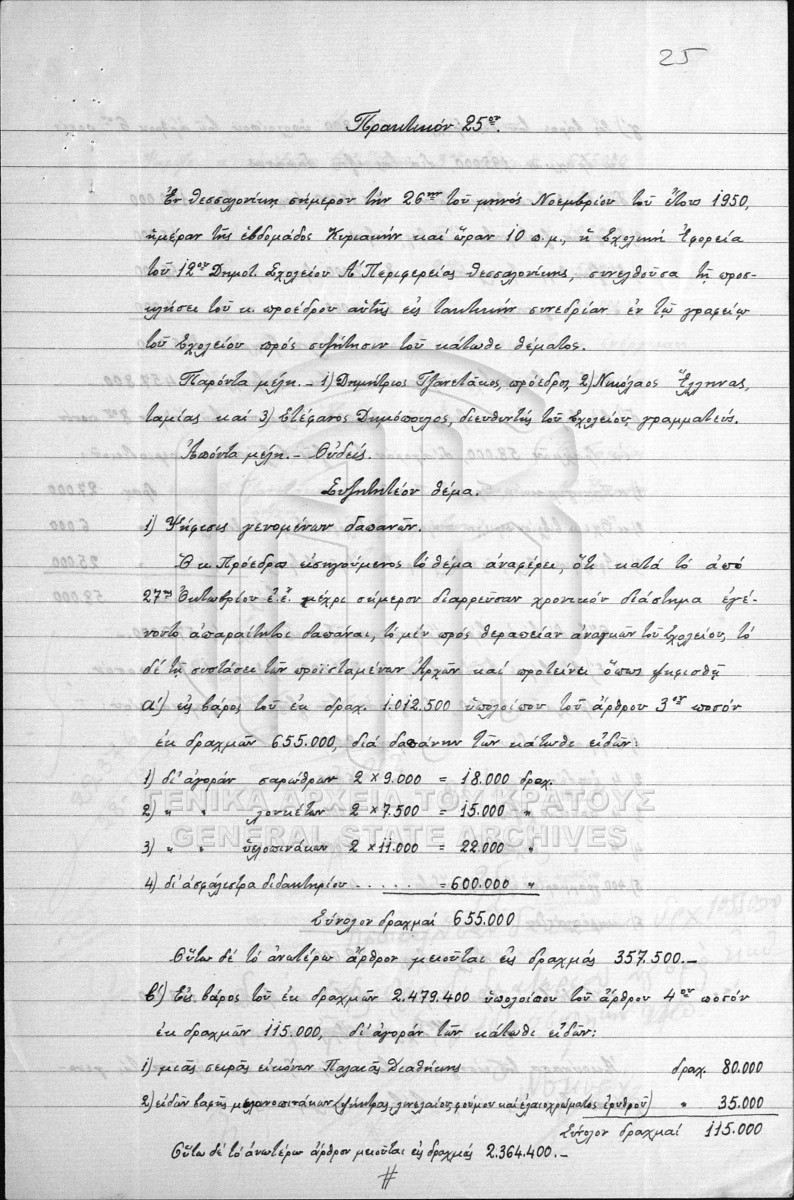 25
Πρακτικόν 25ον.
Ἐν Θεσσαλονίκῃ σήμερον τήν 26ην τοῦ μηνός Νοεμβρίου τοῦ ἔτους 1950,
ἡμέραν τῆς ἑβδομάδος Κυριακήν καί ὥραν 10 π.μ., ἡ Σχολική Ἐφορεία
τοῦ 12ου Δημοτ. Σχολείου Α΄ Περιφερείας Θεσσαλονίκης, συνελθοῦσα τῇ προσ-
κλήσει τοῦ κ. προέδρου αὐτῆς εἰς τακτικήν συνεδρίαν ἐν τῷ γραφείῳ
τοῦ Σχολείου πρός συζήτησιν τοῦ κάτωθι θέματος.
Παρόντα μέλη.- 1) Δημήτριος Τζανετάκος, πρόεδρος, 2) Νικόλαος Ἕλληνας,
ταμίας καί 3) Στέφανος Δημόπουλος, διευθυντής τοῦ Σχολείου, γραμματεύς.
Ἀπόντα μέλη.- Οὐδείς.
Συζητητέον θέμα.
1) Ψήφισις γενομένων δαπανῶν.
Ὁ κ. Πρόεδρος εἰσηγούμενος τό θέμα ἀναφέρει, ὅτι κατά τό ἀπό
27ης Ὀκτωβρίου ἐ.ἔ. μέχρι σήμερον διαρρεῦσαν χρονικόν διάστημα ἐγέ-
νοντο ἀπαραίτητοι δαπάναι, τό μέν πρός θεραπείαν ἀναγκῶν τοῦ Σχολείου, τό
δέ τῇ συστάσει τῶν προϊσταμένων Ἀρχῶν καί προτείνει ὅπως ψηφισθῇ
α΄) εἰς βάρος τοῦ ἐκ δραχ. 1.012.500 ὑπολοίπου τοῦ ἄρθρου 3ου ποσόν
ἐκ δραχμῶν 655.000, διά δαπάνην τῶν κάτωθι εἰδῶν:
1) δι' ἀγοράν σαρώθρων 2 × 9.000 = 18.000 δραχ.
2) " " λουκέτων 2 × 7.500 = 15.000 "
3) " " ὑελοπινάκων 2 × 11.000 = 22.000 "
4) δι' ἀσφάλιστρα διδακτηρίου . . . . . = 600.000 "
Σύνολον δραχμαί 655.000
Οὕτω δέ τό ἀνωτέρω ἄρθρον μειοῦται εἰς δραχμάς 357.500.-
β΄) Εἰς βάρος τοῦ ἐκ δραχμῶν 2.479.400 ὑπολοίπου τοῦ ἄρθρου 4ου ποσόν
ἐκ δραχμῶν 115.000, δι' ἀγοράν τῶν κάτωθι εἰδῶν:
1) μιᾶς σειρᾶς εἰκόνων Παλαιᾶς Διαθήκης δραχ. 80.000
2) εἰδῶν βαφῆς μελανοπινάκων (ψήκτρας, λινελαίου, φούμου καί ἐλαιοχρώματος ἐρυθροῦ) " 35.000
Σύνολον δραχμαί 115.000
Οὕτω δέ τό ἀνωτέρω ἄρθρον μειοῦται εἰς δραχμάς 2.364.400.-
#
ΓΕΝΙΚΑ ΑΡΧΕΙΑ ΤΟΥ ΚΡΑΤΟΥΣ
GENERAL STATE ARCHIVES